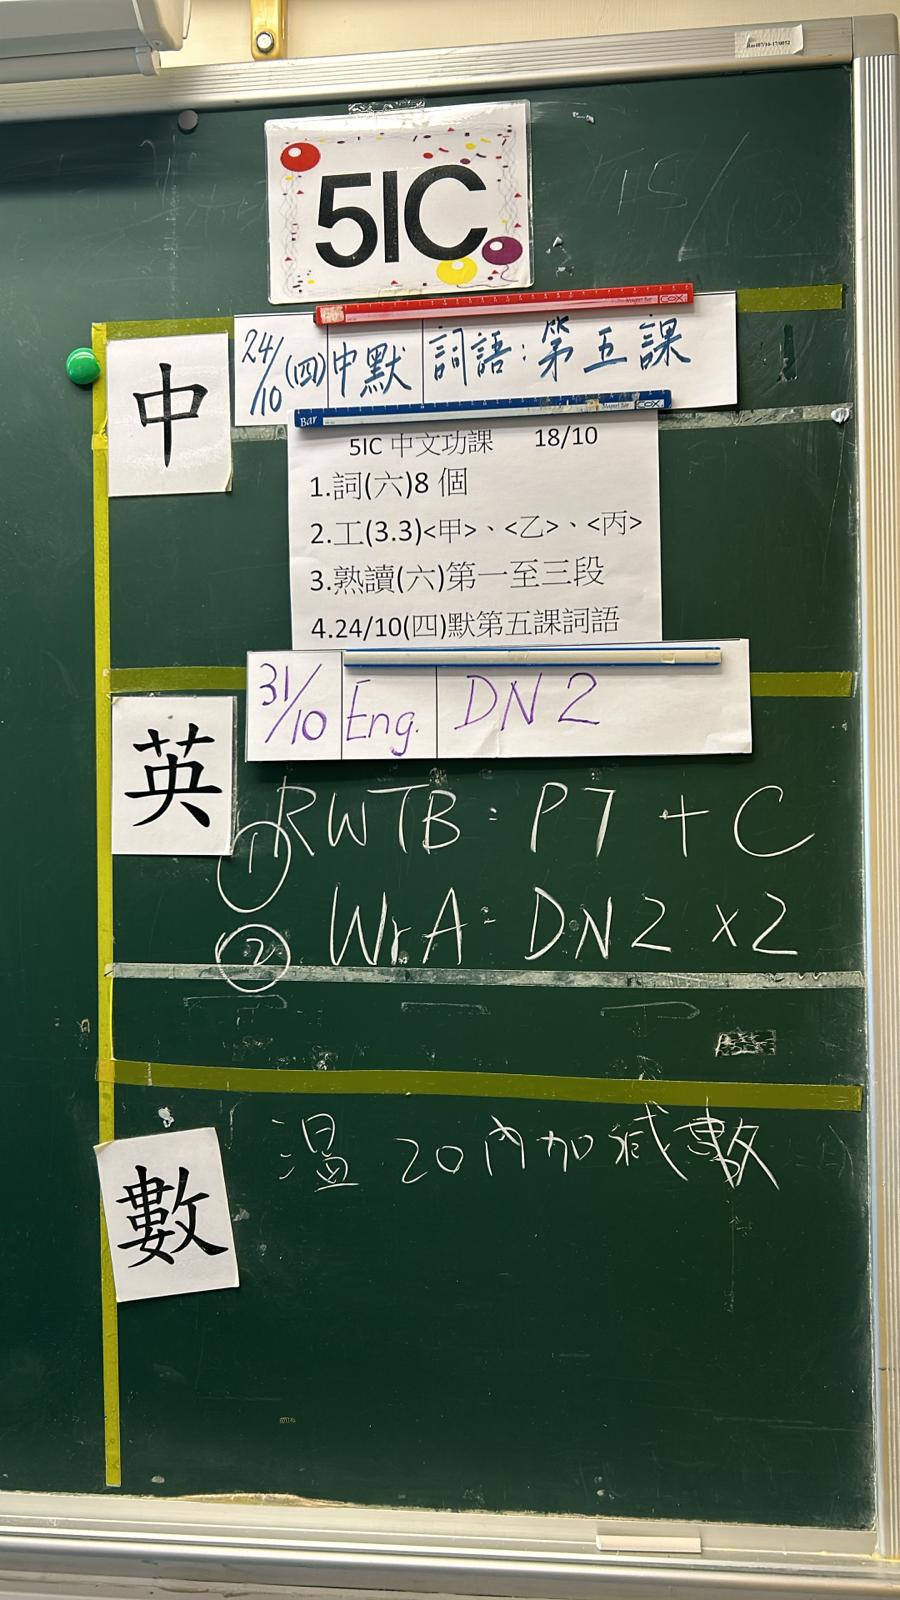 5IC
中
24/10(四) 中默 詞語:第五課
Bar
5IC 中文功課 18/10
1.詞(六)8 個
2.工(3.3)<甲>、<乙>、<丙>
3.熟讀(六)第一至三段
4.24/10(四)默第五課詞語
英
31/10 Eng. DN2
① RWTB: P7 + C
② WrA: DN2 x2
數
溫 20內加減數